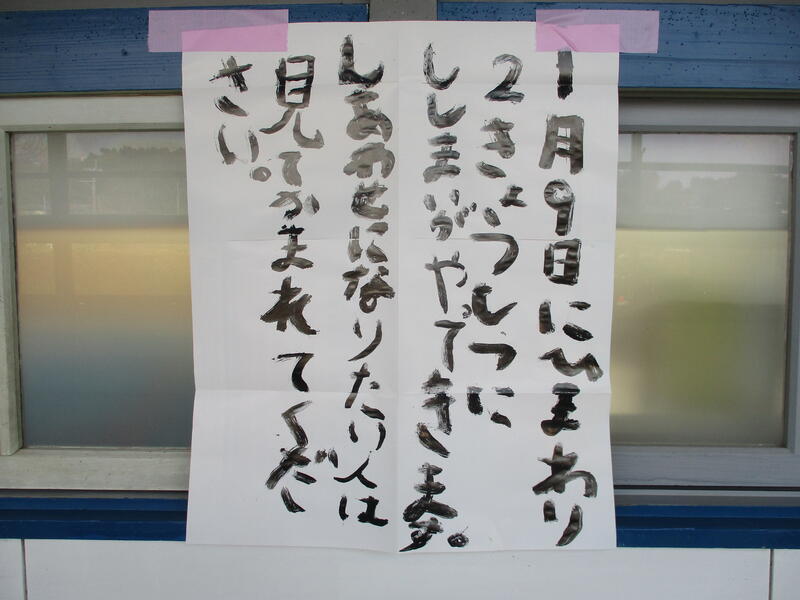 1月9日にひまわり
2きょうしつに
ししまいがやってきます。
しあわせになりたい人は
見てかまれてくだ
さい。